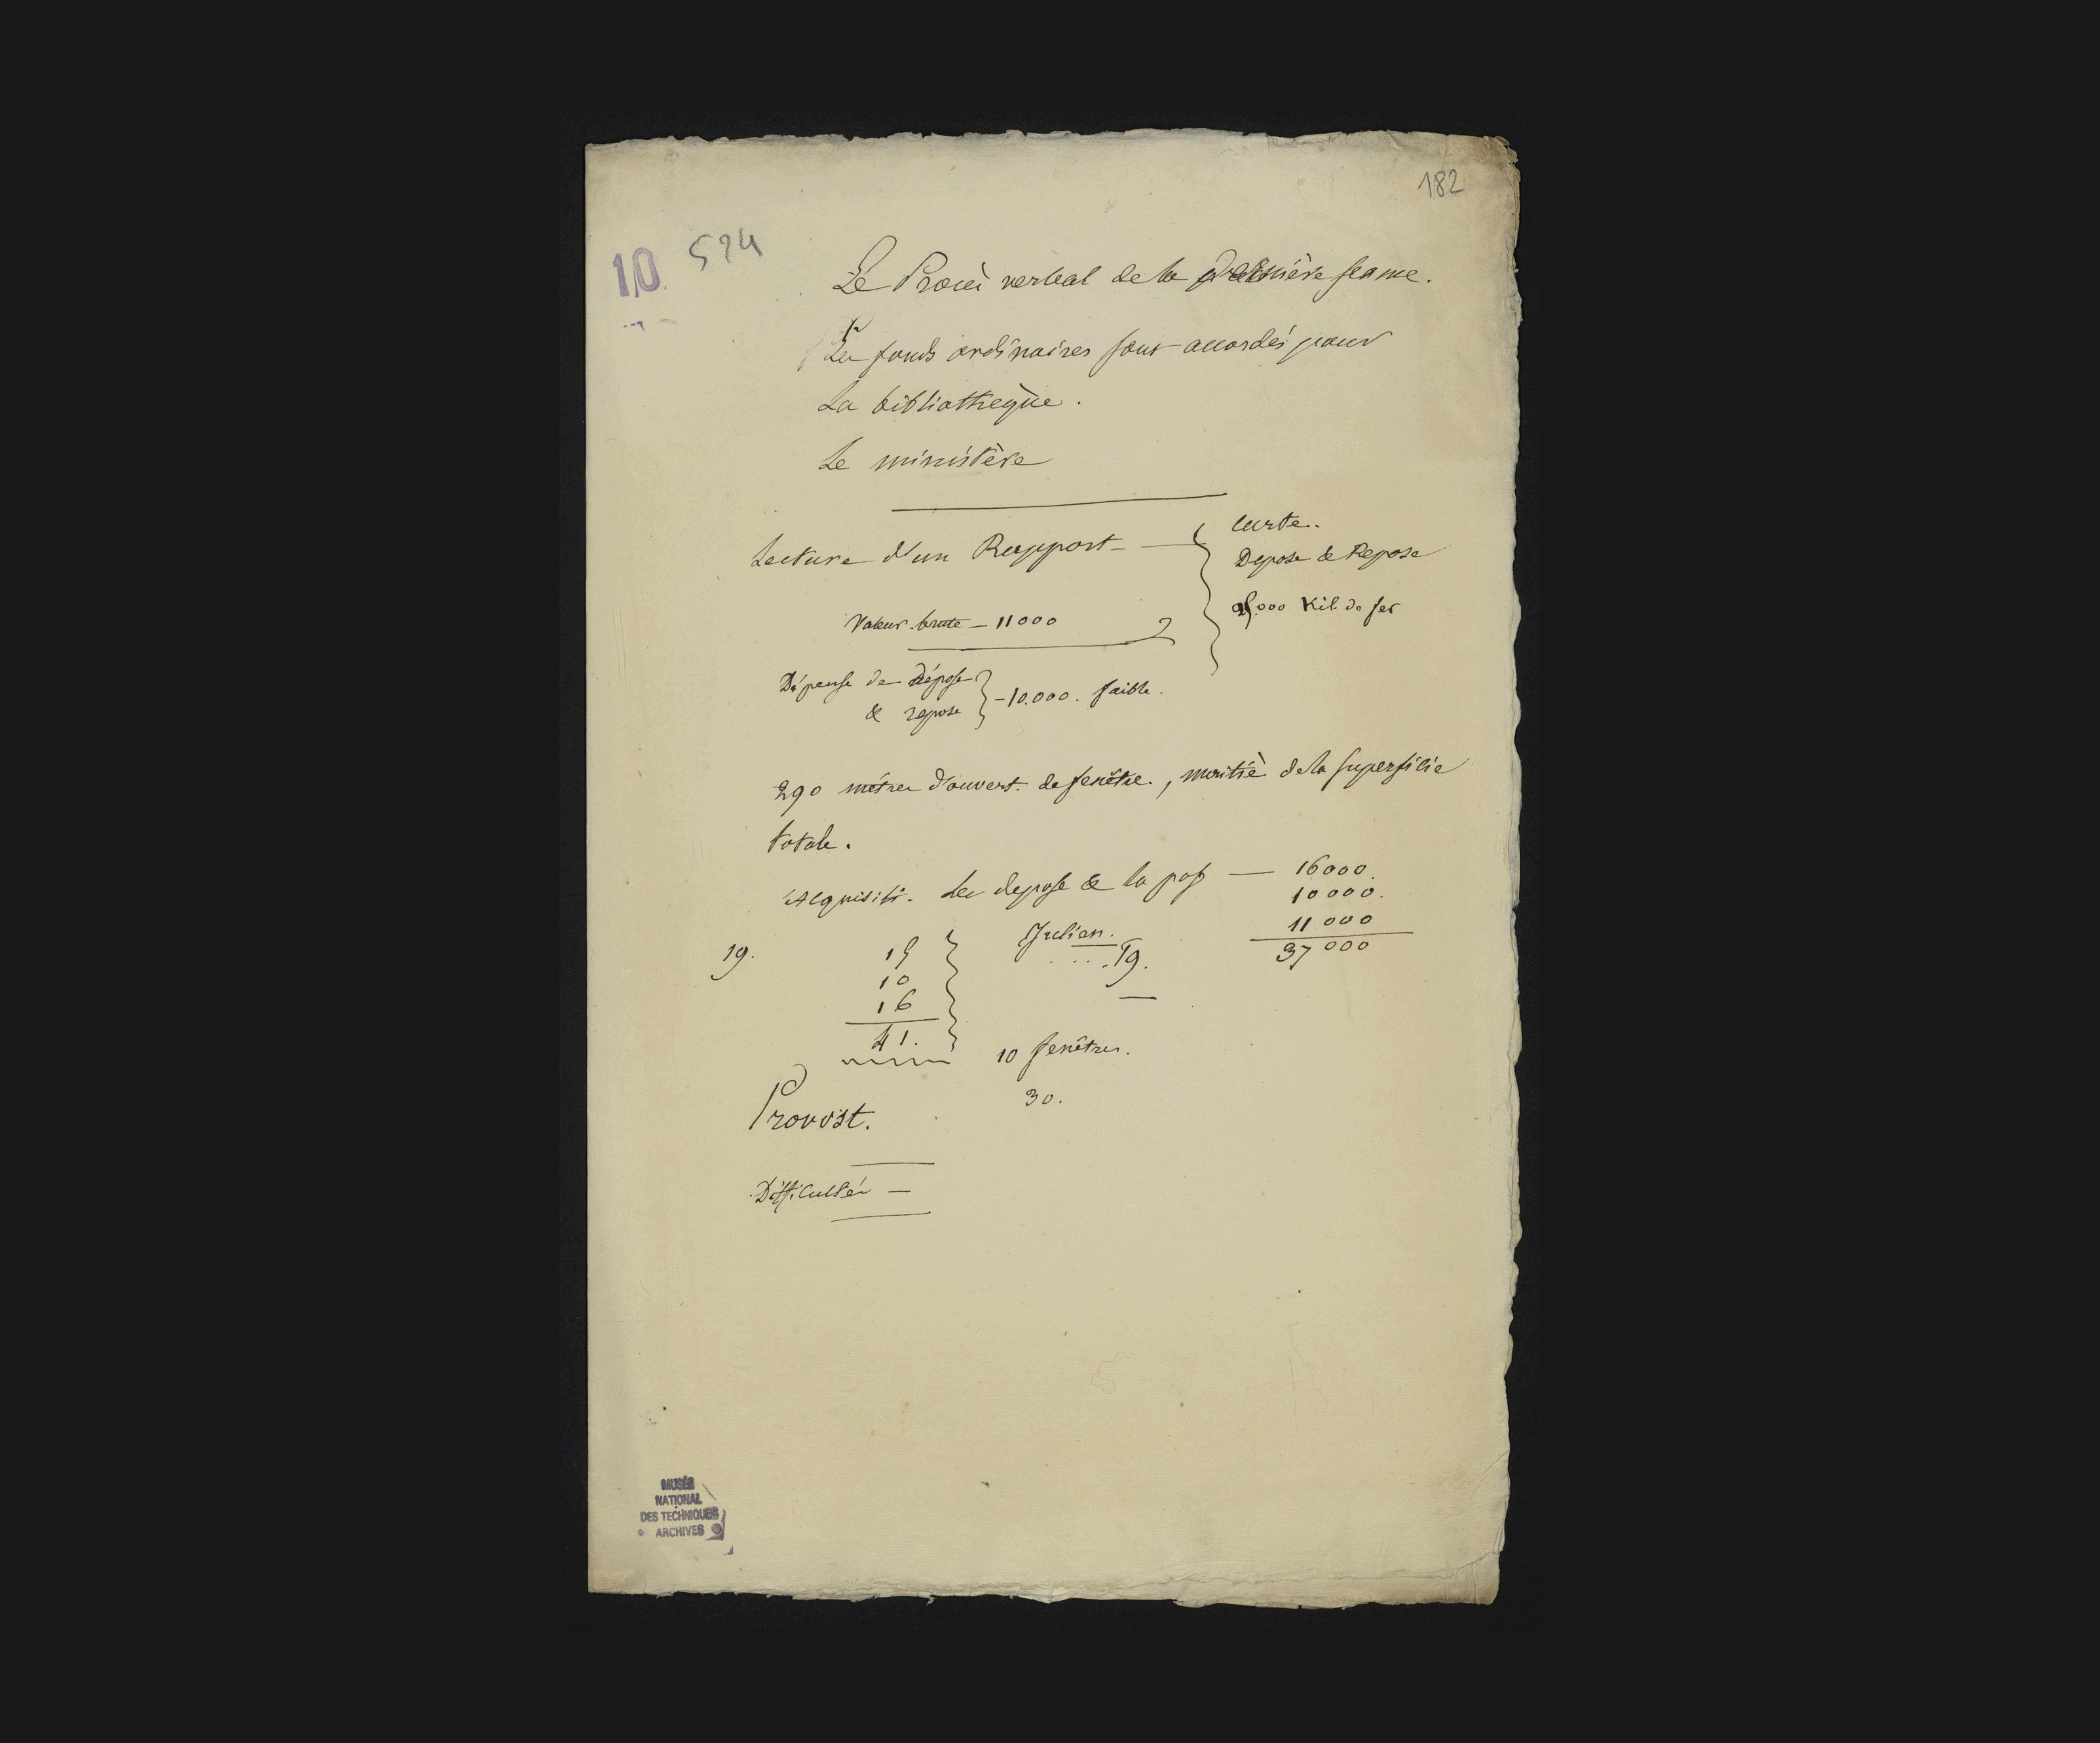 182
10 524
Le Procès verbal de la dernière séance.
Les fonds ordinaires sont accordés pour
La bibliothèque.
Le ministère
Lecture d'un Rapport —
Depose & Repose
000 Kil. de fer
Valeur brute — 11000
Dépense de dépose
& repose
— 10.000. faible.
290 mètres d'ouvert. de fenêtre, moitié de la superficie
totale.
Acquisiti. La depose & la pose — 16000.
10000.
11000
37000
19.
15
10
16
41.
Julien.
....19.
10 fenêtres.
30.
Provost.
Difficultés —
MUSÉE
NATIONAL
DES TECHNIQUES
ARCHIVES